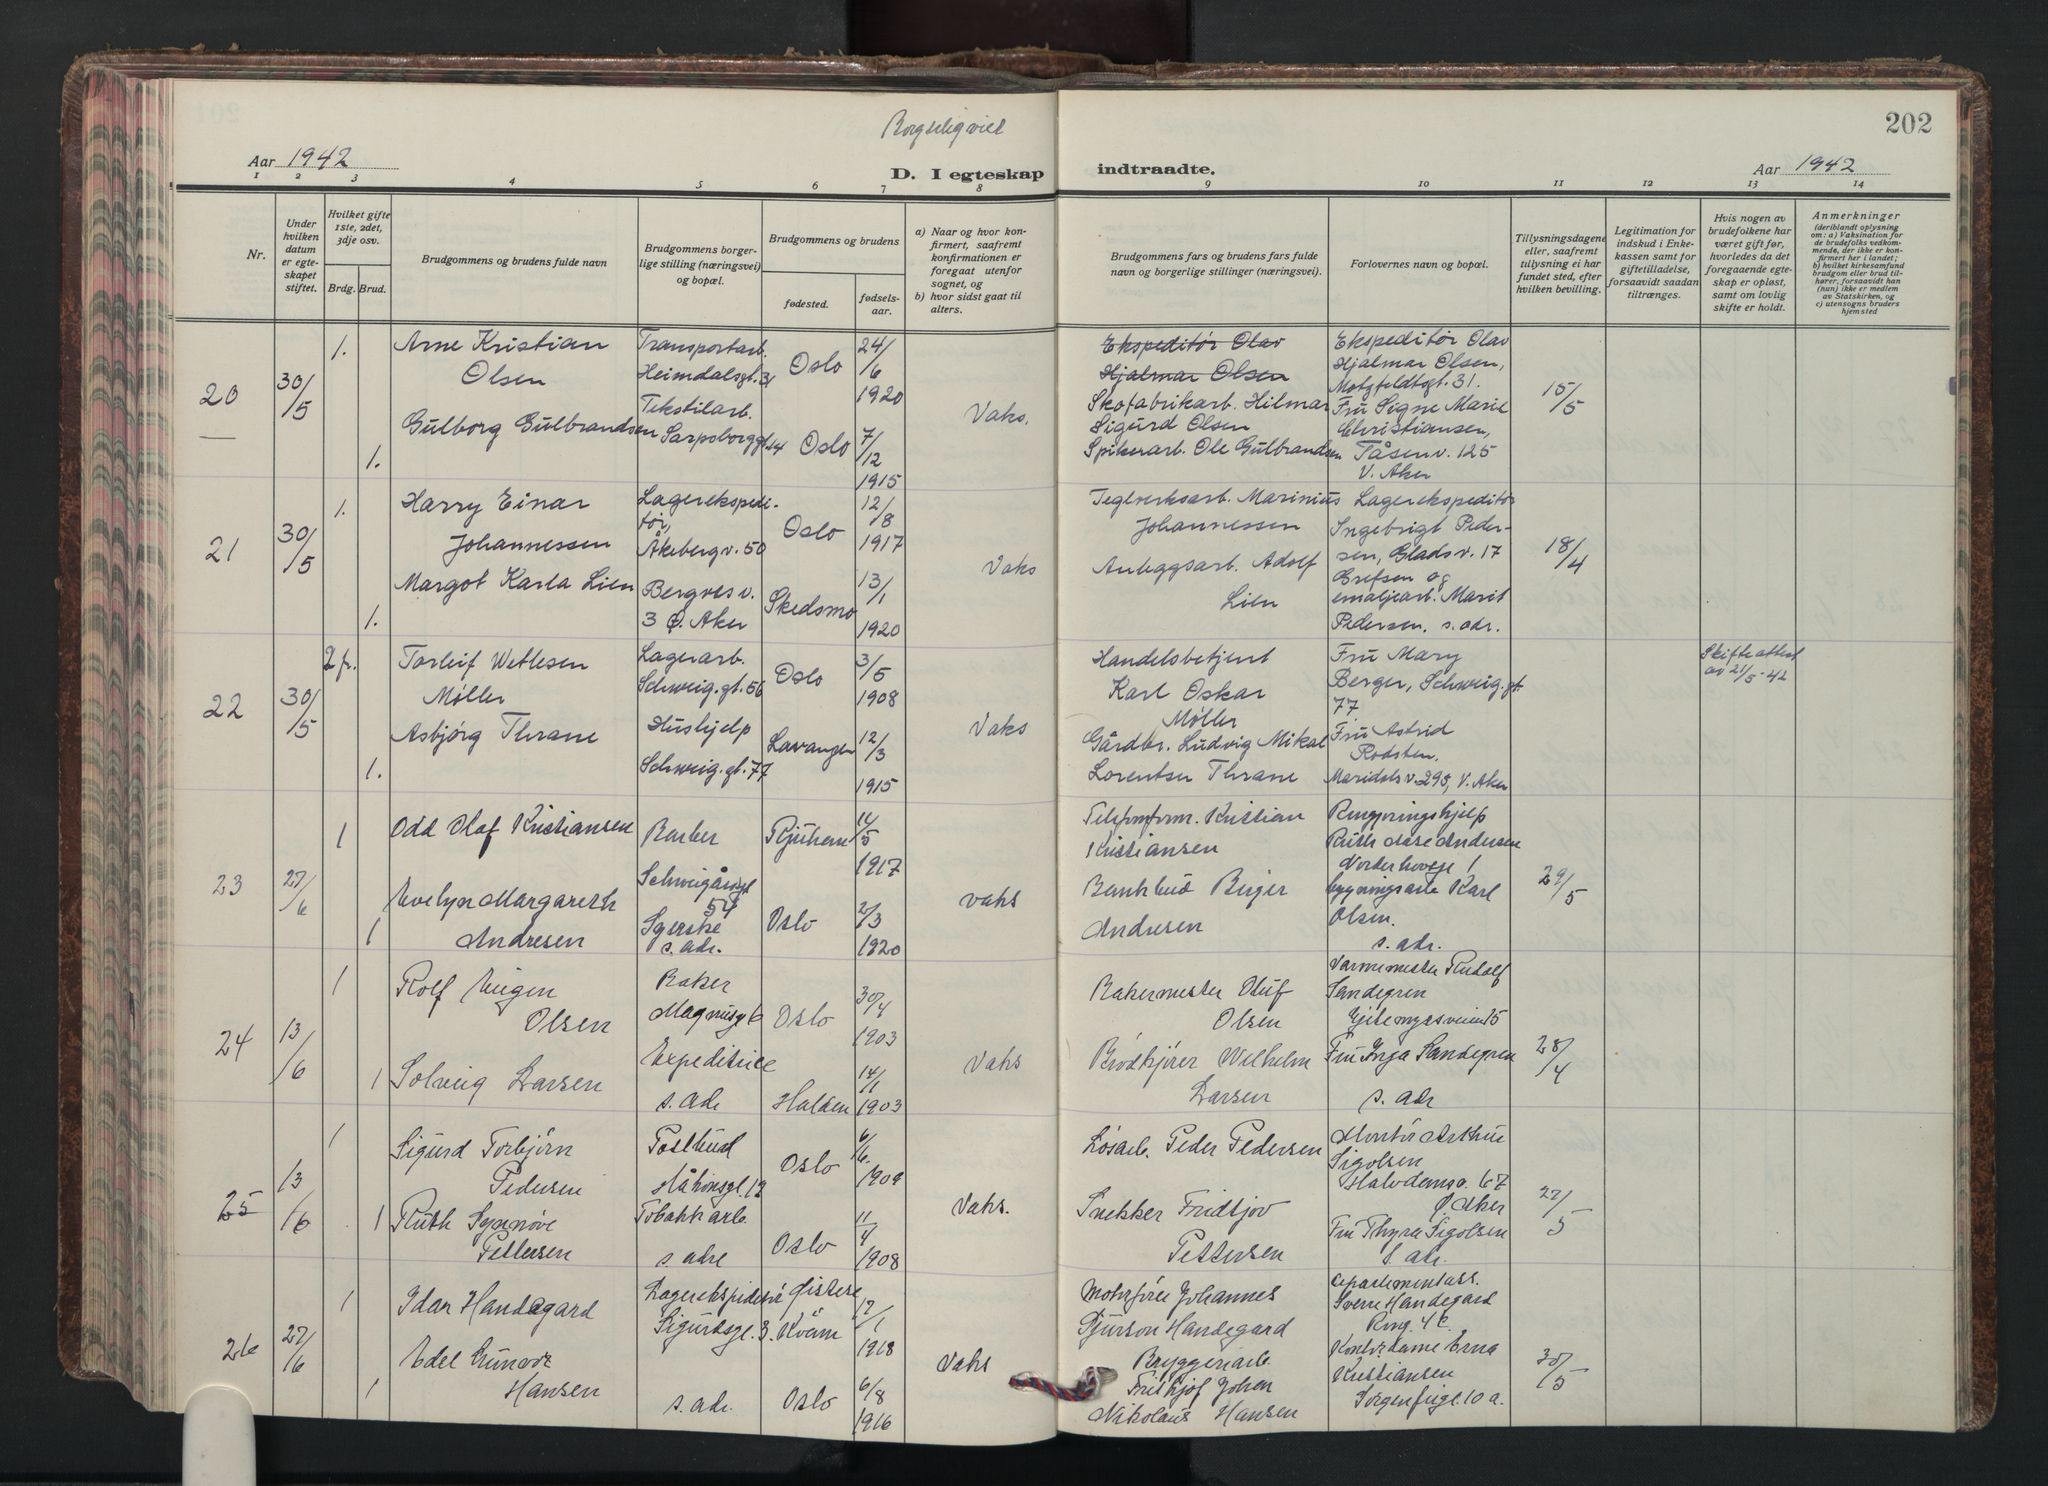 Borgerlig viet
Aar 1942
D. I egteskap
indtraadte.
Aar 1942
202
1 2 3 4 5 6 7 8 9 10 11 12 13 14
Nr.
Under hvilken datum er egteskapet stiftet.
Hvilket gifte 1ste, 2det, 3dje osv.
Brdg. Brud.
Brudgommens og brudens fulde navn
Brudgommens borgerlige stilling (næringsvei) og bopæl.
Brudgommens og brudens
fødested.
fødselsaar.
a) Naar og hvor konfirmert, saafremt konfirmationen er foregaat utenfor sognet, og
b) hvor sidst gaat til alters.
Brudgommens fars og brudens fars fulde navn og borgerlige stillinger (næringsvei).
Forlovernes navn og bopæl.
Tillysningsdagene eller, saafremt tillysning ei har fundet sted, efter hvilken bevilling.
Legitimation for indskud i Enkekassen samt for giftetilladelse, forsaavidt saadan tiltrænges.
Hvis nogen av brudefolkene har været gift før, hvorledes da det foregaaende egteskap er opløst, samt om lovlig skifte er holdt.
Anmerkninger
(deriblandt oplysning om: a) Vaksination for de brudefolks vedkommende, der ikke er konfirmert her i landet; b) hvilket kirkesamfund brudgom eller brud tilhører, forsaavidt han (hun) ikke er medlem av Statskirken, og c) utensogns bruders hjemsted
20
30/5
1.
Arne Kristian
Olsen
Transportarb.
Heimdalsgt. 31
Oslo
24/6
1920
Gulborg Gulbrandsen
1.
Tekstilarb.
Sarpsborggt. 14
Oslo
7/12
1915
Vaks.
Ekspeditør Olav
Hjalmar Olsen
Skofabrikarb. Hilmar
Sigurd Olsen
Spikerarb. Ole Gulbrandsen
Ekspeditør Olav
Hjalmar Olsen,
Motzfeldtsgt. 31.
Fru Signe Marie
Christiansen,
Tåsenv. 125
V. Aker
15/5
21
30/5
1.
Harry Einar
Johannessen
Lagerekspedi-
tør,
Åkebergv. 50
Oslo
12/8
1917
Margot Karla Lien
1.
Bergresv.
3 Ø. Aker
Skedsmo
13/1
1920
Vaks
Teglverksarb. Marinius
Johannessen
Anleggsarb. Adolf
Lien
Lagerekspeditør
Ingebrigt Peder-
sen, Gladsv. 17
Grefsen og
emaljearb. Marit
Pedersen, s. adr.
18/4
22
30/5
2 fr.
Torleif Wetlesen
Møller
Lagerarb.
Schweig.gt. 56
Oslo
3/5
1908
Asbjørg Thrane
1.
Hushjelp
Schweig.gt. 77
Lavangen
12/3
1915
Vaks
Handelsbetjent
Karl Oskar
Møller
Gårdbr. Ludvig Mikal
Lorentsen Thrane
Fru Mary
Berger, Schweig.gt.
77
Fru Astrid
Rodsten.
Maridalsv. 295, V. Aker
Skifteattest
av 21/5-42
23
27/6
1
Odd Olaf Kristiansen
Barber
Schweigårdsgt
54
Rjukan
14/5
1917
Evelyn Margareth
Andresen
1
Syerske
s. adr.
Oslo
2/3
1920
vaks
Telefonform. Kristian
Kristiansen
Bankbud Birger
Andresen
Rengjøringshjelp
Ruth Aase Andersen
Norderhovgt 1
bygningsarb Karl
Olsen.
s. adr.
29/5
24
13/6
1
Rolf Eugen
Olsen
Baker
Magnusgt 6
Oslo
30/4
1903
Solveig Larsen
1
Expeditrice
s. adr
Halden
14/1
1903
Vaks
Bakermester Oluf
Olsen
Brødkjører Wilhelm
Larsen
Varmemester Rudolf
Sandegren
Geitemyrsveien 15
Fru Inga Sandegren
s. adr
28/4
25
13/6
1
Sigurd Torbjørn
Pedersen
Postbud
Håkonsgt. 12
Oslo
6/6.
1909
1
Ruth Synnøve
Pettersen
Tobakkarb.
s. adre
Oslo
11/4
1908
Vaks.
Løsarb. Peder Pedersen
Snekker Fridtjov
Pettersen
Montør Arthur
Sigolsen
Halvdansv. 67
Ø. Aker
Fru Thyra Sigolsen
S. adr.
27/5
26
27/6
1
Idar Handegard
Lagerekspeditør
Sigurdsgt. 3.
Øistese
Kvam
17/1
1918
Edel Gunvor
Hansen
1
s. adr.
Oslo
6/8
1916
Vaks
Johannes
Handegard
Bryggeriarb.
Frithjof Johan
Nikolaus Hansen
Departementass.
Sverre Handegard
Ring. 4 C.
Kontordame Erna
Kristiansen
Sorgenfrigt. 10 a.
30/5